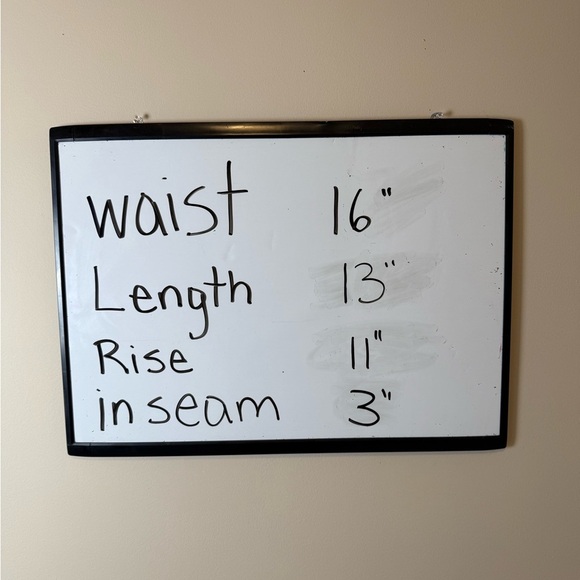 waist 16"
Length 13"
Rise 11"
inseam 3"